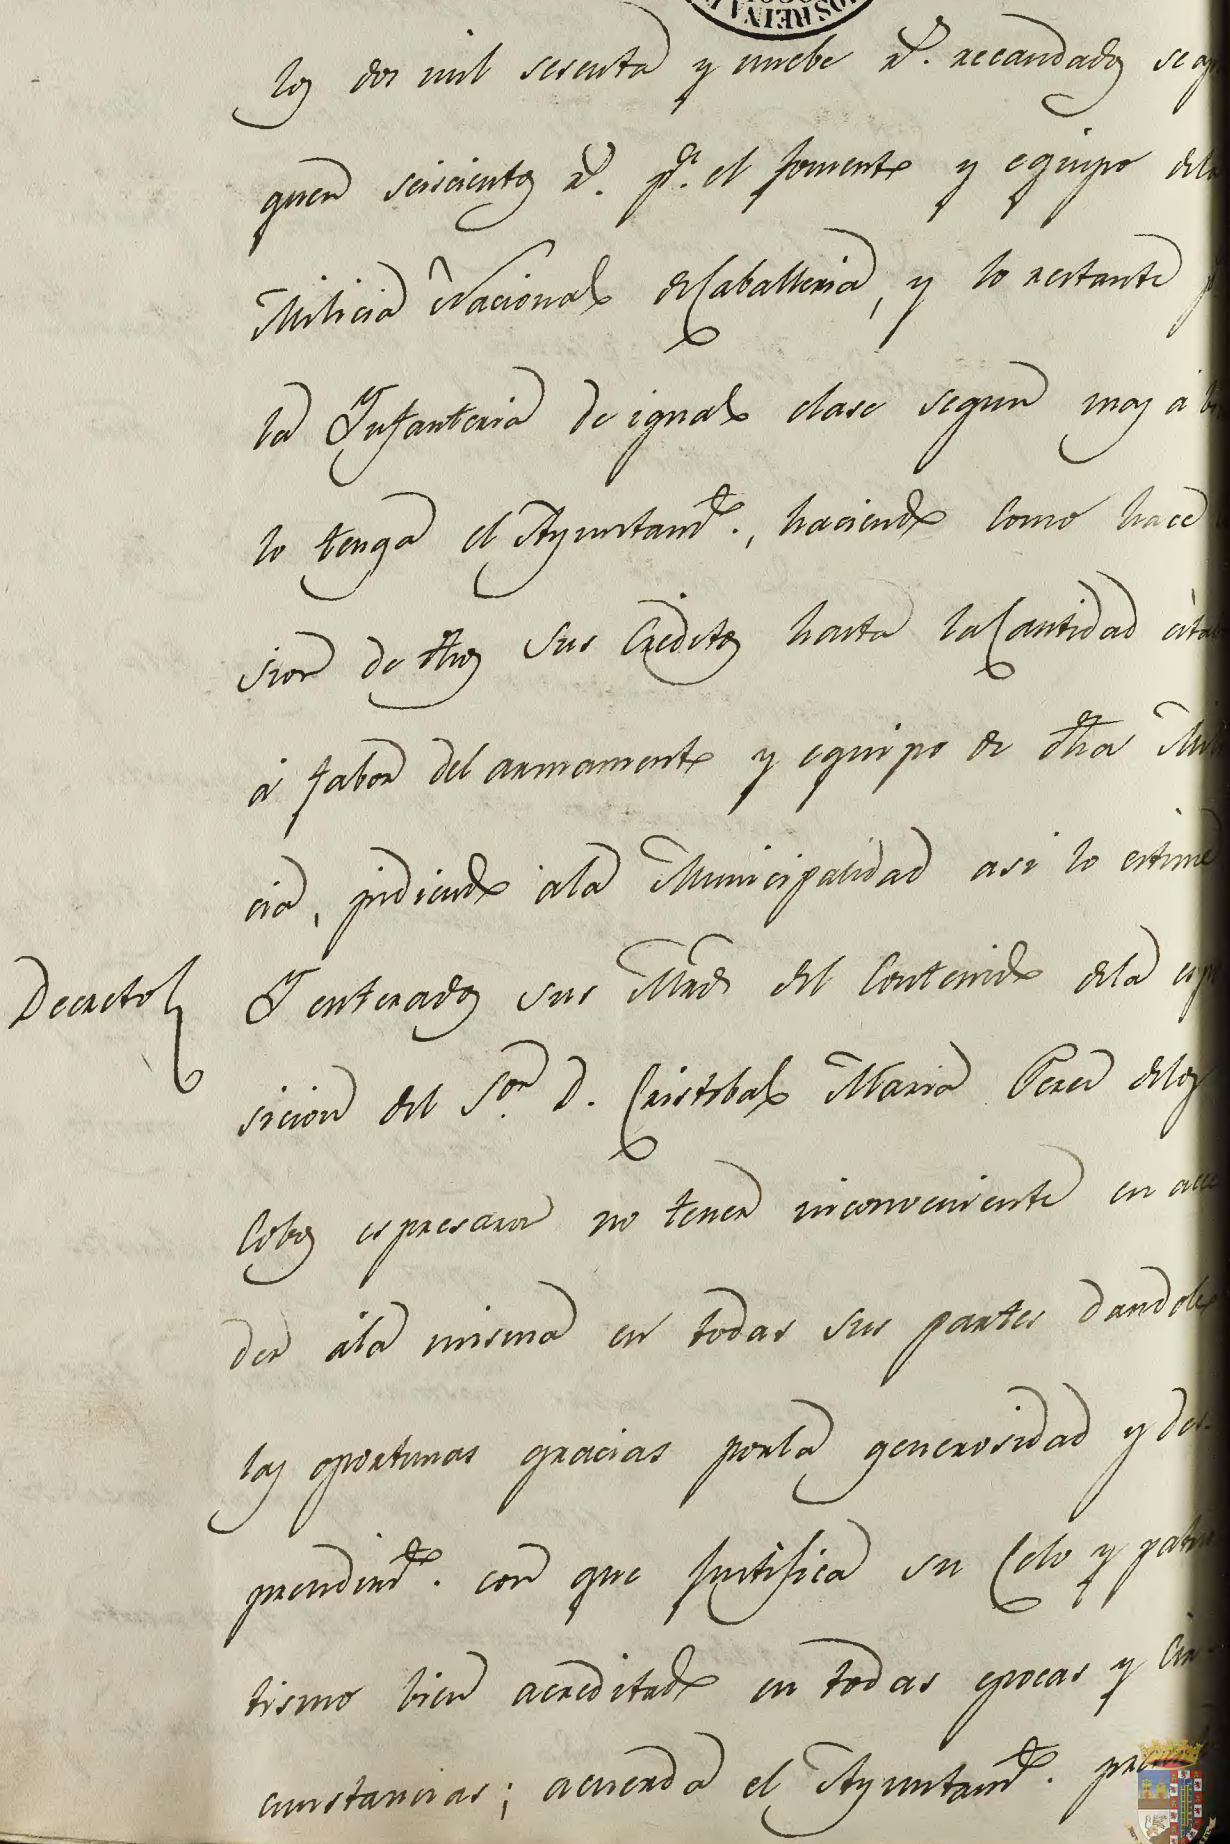 los dos mil sesenta y nuebe rs. recaudados se a
quen seiscientos rs. pa. el fomento y equipo dela
Milicia Nacional de Caballeria, y lo restante p
la Infanteria de igual clase segun mas á bi
lo tenga el Ayuntamto., haciendo como hace
sion de dhos sus Creditos hasta la Cantidad cita
á fabor del armamento y equipo de dha Mili
cia, pidiendo ala Municipalidad asi lo estime
Decreto
Y enterados sus Mrds del Contenido dela espo
sicion del Sor. D. Cristobal Maria Perez delos
Cobos espresaron no tener inconveniente en acce
der ála misma en todas sus partes dandole
las oportunas gracias por la generosidad y des-
prendimto. con que justifica su Celo y patrio
tismo bien acreditado en todas epocas y Cir-
cunstancias; acuerda el Ayuntamto.